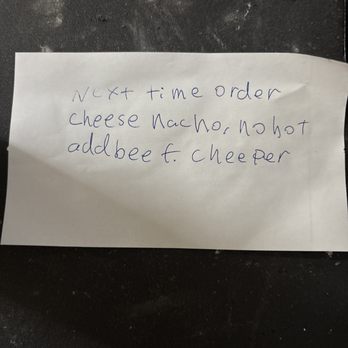 Next time order
cheese nacho, no hot
add beef. cheeper